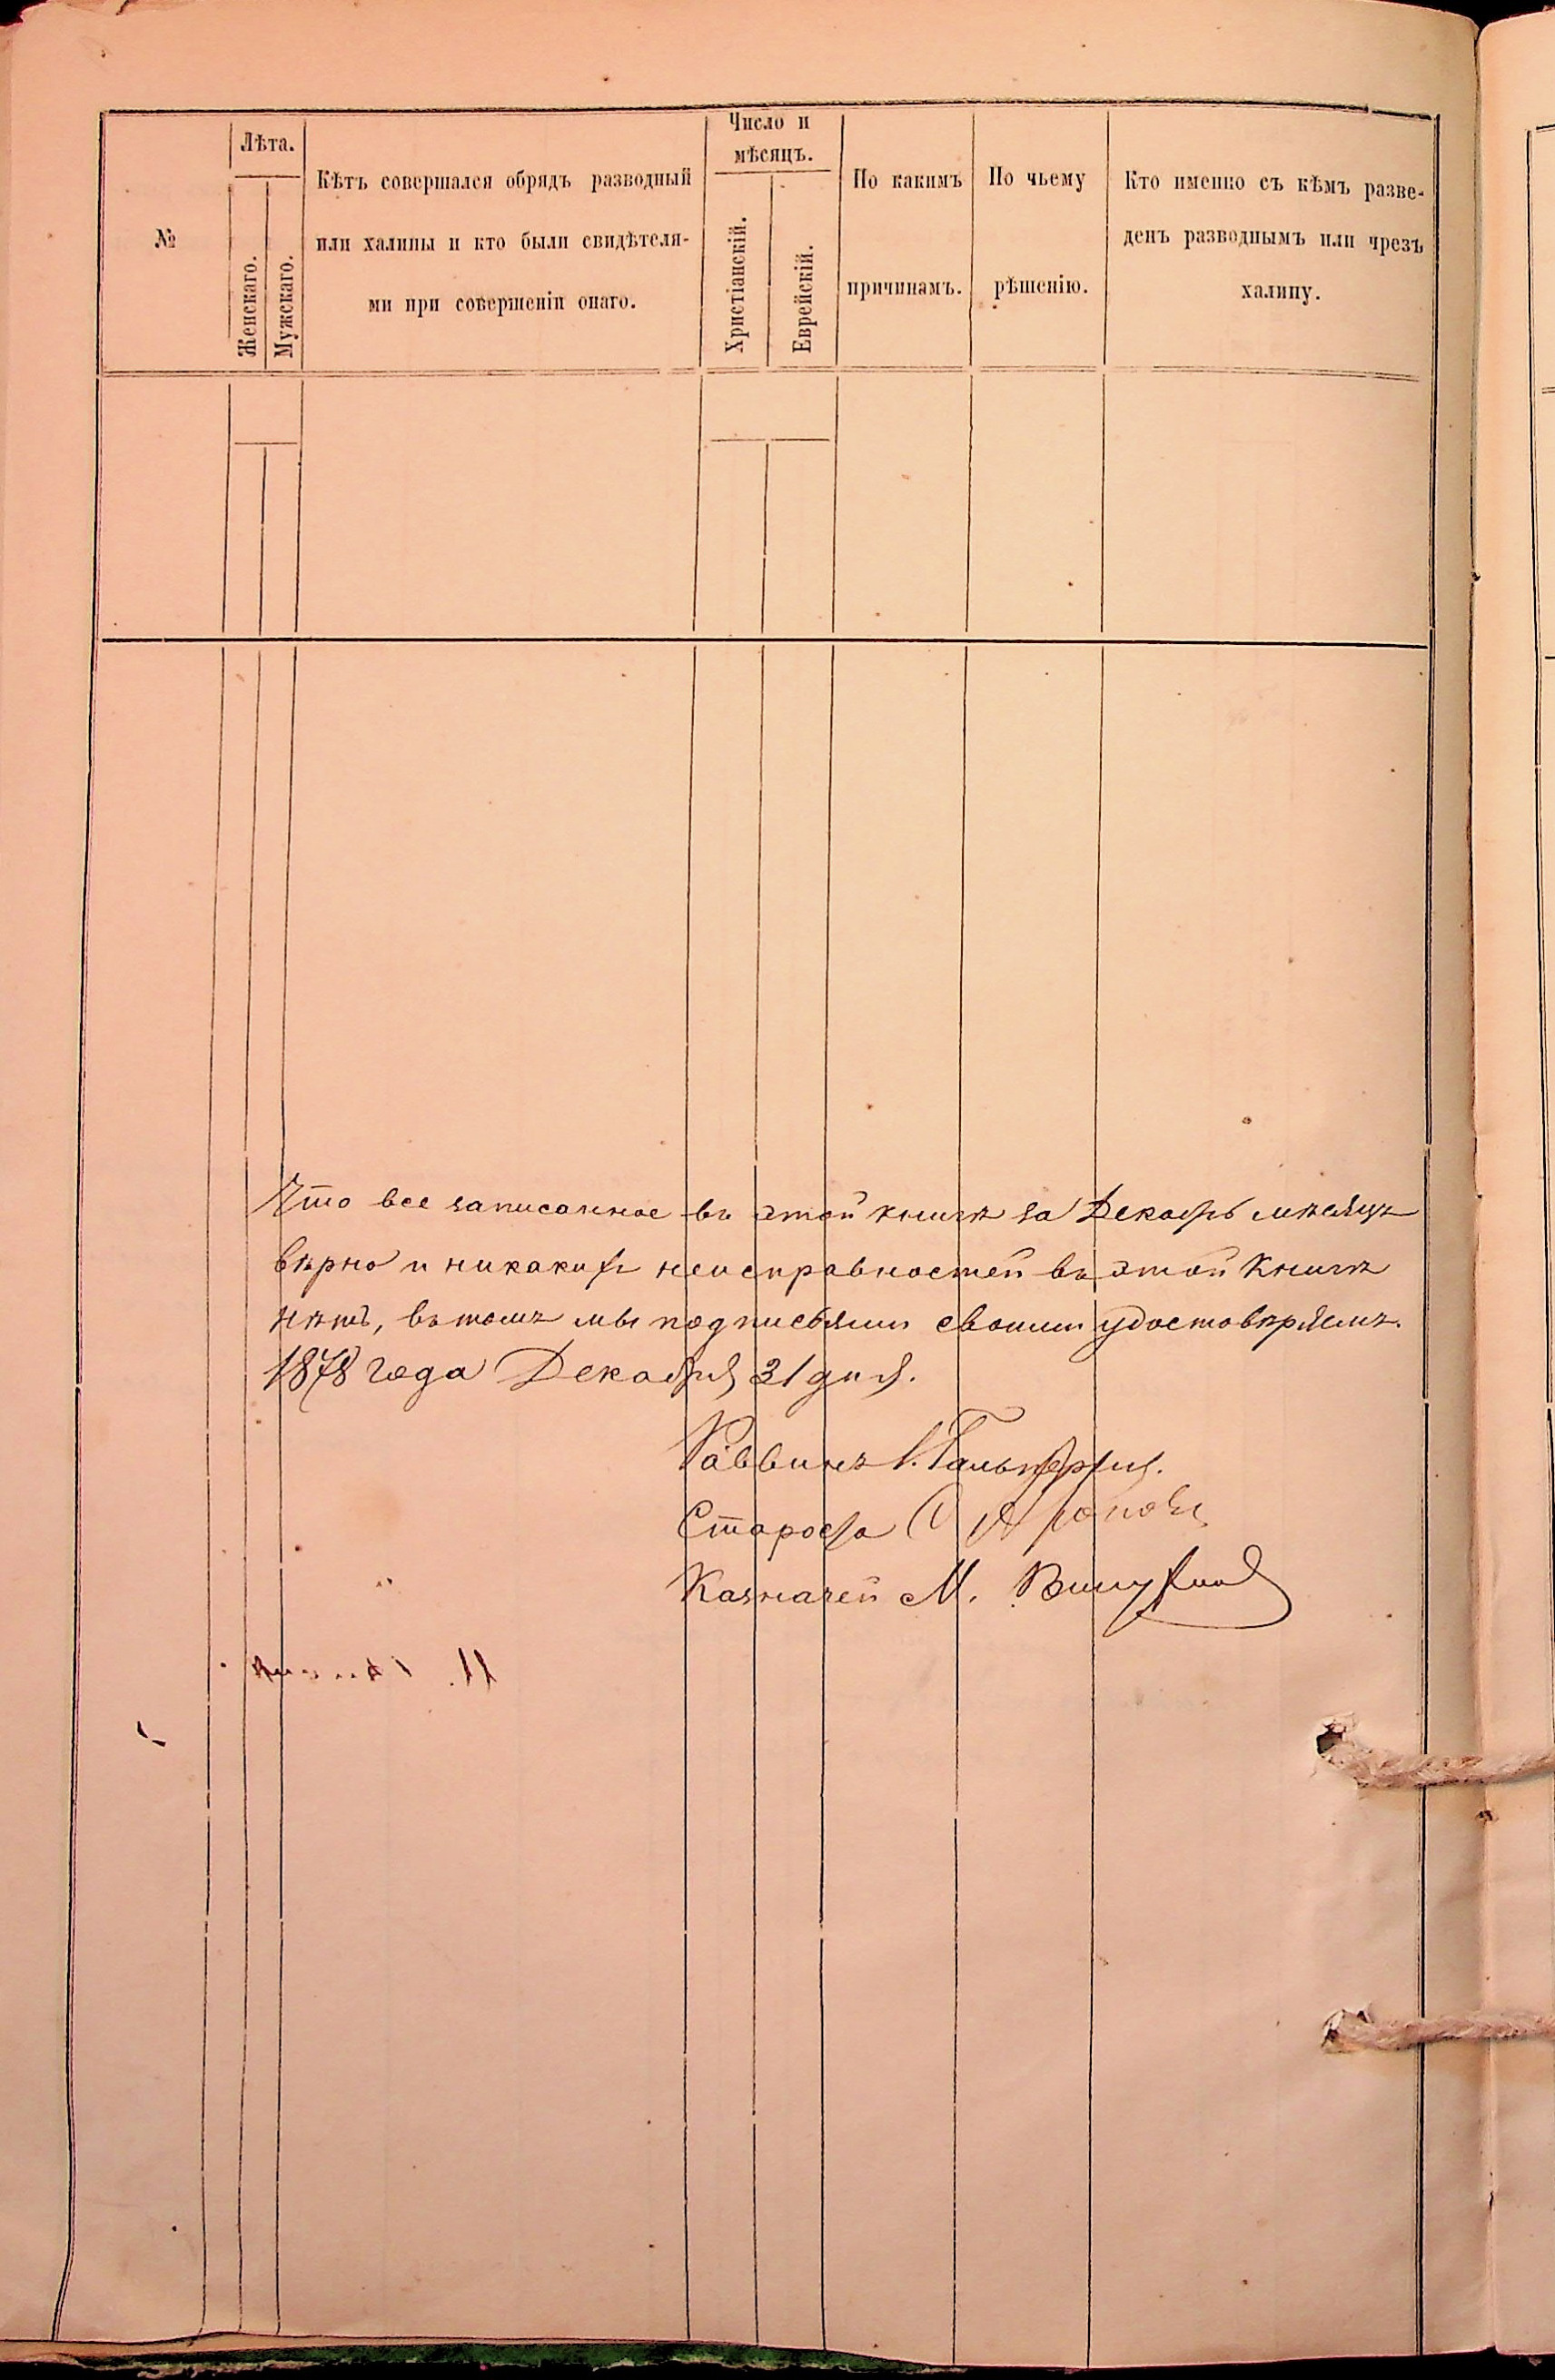 №
Лѣта.
Женскаго.
Мужскаго.
Кѣтъ совершался обрядъ разводный
или халицы и кто были свидѣтеля-
ми при совершеніи онаго.
Число и
мѣсяцъ.
Христіанскій.
Еврейскій.
По какимъ
причинамъ.
По чьему
рѣшенію.
Кто именно съ кѣмъ разве-
денъ разводнымъ или чрезъ
халицу.
Что все записанное въ этой книгѣ за Декабрь мѣсяцъ
вѣрно и никакихъ неисправностей въ этой книгѣ
нѣтъ, въ томъ мы подписями своими удостовѣряемъ.
1878 года Декабря 31 дня.
Раввинъ Гальперинъ.
Староста
Казначей М.